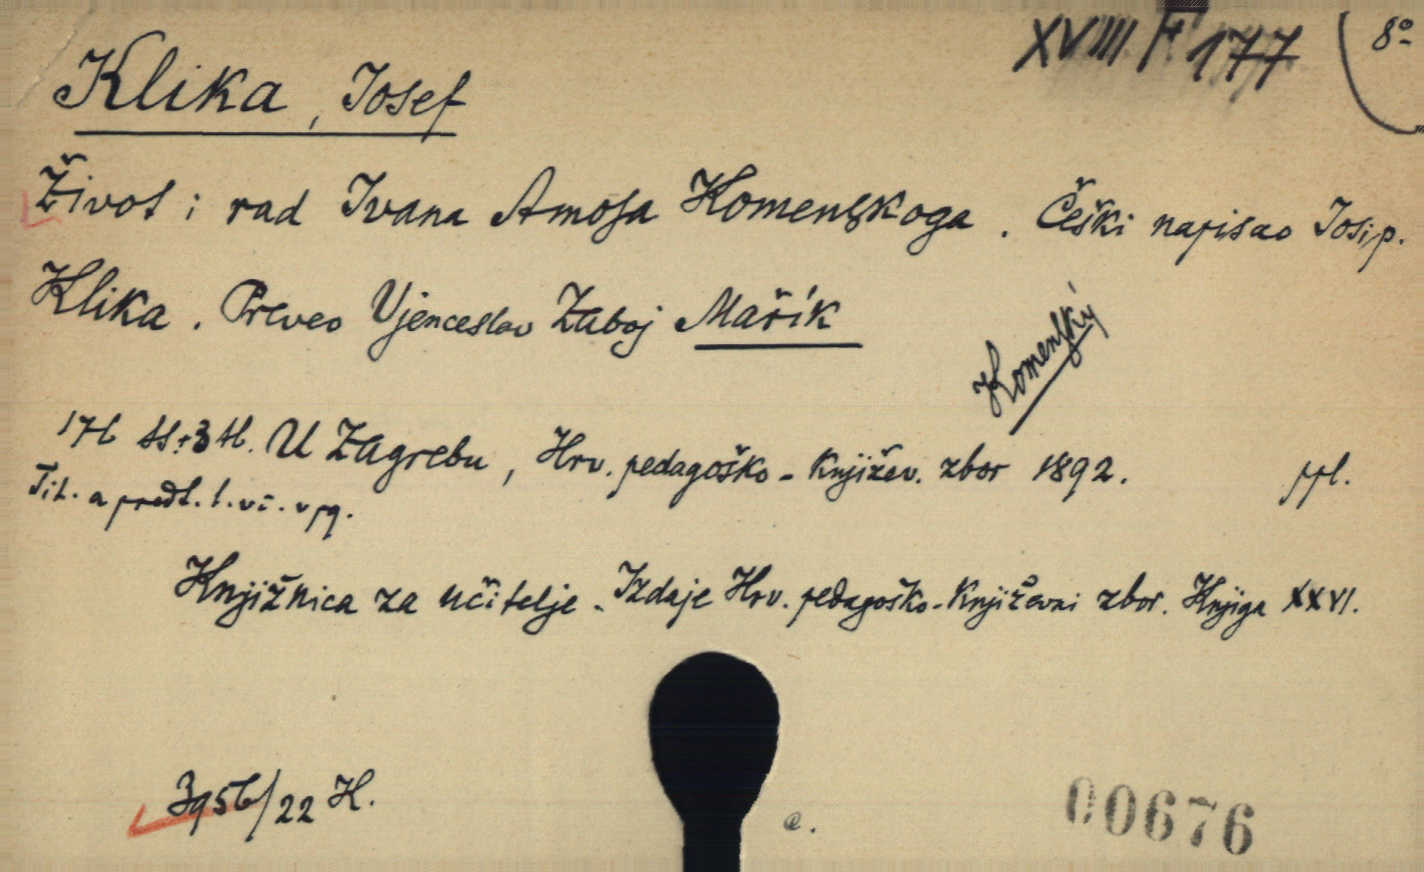 XVIII F 177
8º
Klika, Josef
Život i rad Ivana Amosa Komenskoga. Češki napisao Josip.
Klika. Preveo Vjenceslav Zaboj Mařík
Komenský
176 ss+3 sl. U Zagrebu, Hrv. pedagoško-književ. zbor 1892. ppl.
Tit. a předt. l. vi. v pg.
Knjižnica za učitelje - Izdaje Hrv. pedagoško-književni zbor. Knjiga XXVI.
3956/22 H.
e.
00676